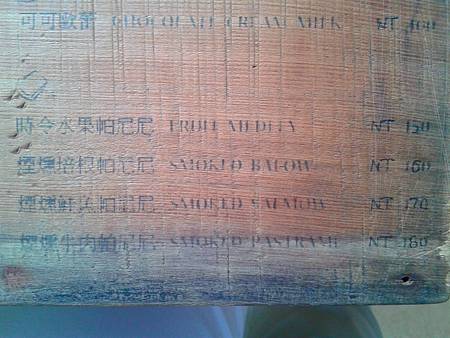 可可歐蕾 CHOCOLATE CREAM MILK NT 100
時令水果帕尼尼 FRUIT MEDLEY NT 150
煙燻培根帕尼尼 SMOKED BACOW NT 160
煙燻鮭魚帕尼尼 SMOKED SALMOW NT 170
煙燻牛肉帕尼尼 SMOKED PASTRAMI NT 180